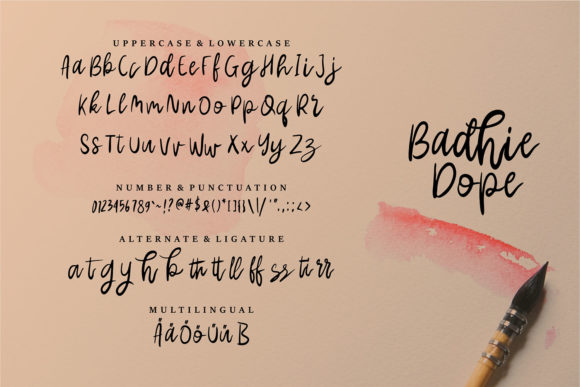 UPPERCASE & LOWERCASE
Aa Bb Cc Dd Ee Ff Gg Hh Ii Jj
Kk Ll Mm Nn Oo Pp Qq Rr
Ss Tt Uu Vv Ww Xx Yy Zz
NUMBER & PUNCTUATION
0123456789~!?@#$&()*[]{}\|/'".,:;<>
ALTERNATE & LIGATURE
a t g y h b th tt ll ff ss ti rr
MULTILINGUAL
ÄäÖöÜüB
Badhie
Dope